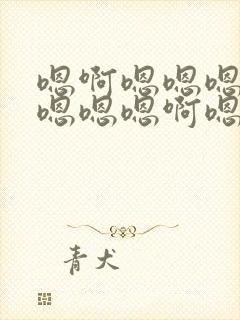 嗯啊嗯嗯嗯
嗯嗯嗯啊嗯
青犬